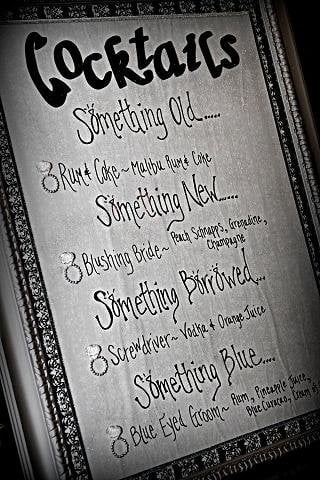 Cocktails
Something Old.....
Rum & Coke ~ Malibu Rum & Coke
Something New.....
Blushing Bride ~ Peach Schnapp's, Grenadine,
Champagne
Something Borrowed...
Screwdriver ~ Vodka & Orange Juice
Something Blue....
Blue Eyed Groom ~ Rum, Pineapple Juice,
Blue Curacao, Cream of